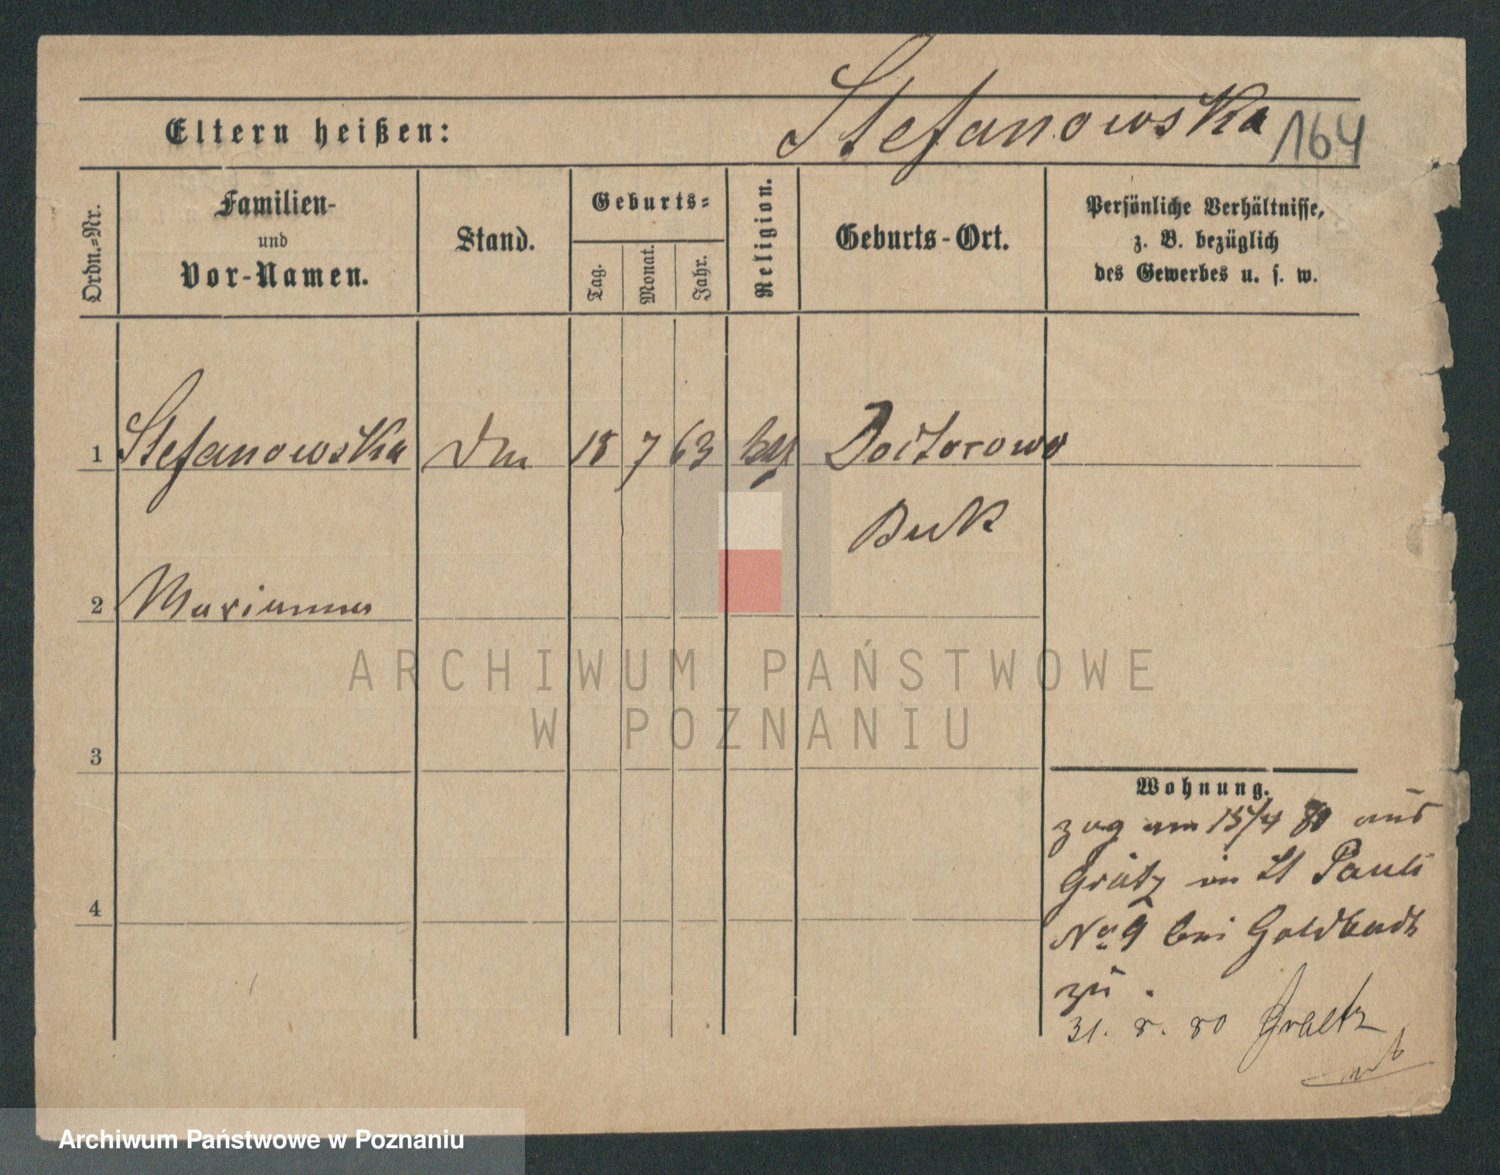 Stefanowska 164
Eltern heißen:
Ordn.-Nr.
Familien-
und
Vor-Namen.
Stand.
Geburts-
Tag.
Monat.
Jahr.
Religion.
Geburts-Ort.
Persönliche Verhältnisse,
z. B. bezüglich
des Gewerbes u. s. w.
1 Stefanowska 18 7 63 Doctorowo
Buk
2 Marianna
3
4
Wohnung.
zog am 15/4 80 aus
Grätz in St Pauli
No 9 bei
zu.
31. 8. 80 Graetz
ARCHIWUM PAŃSTWOWE
W POZNANIU
Archiwum Państwowe w Poznaniu